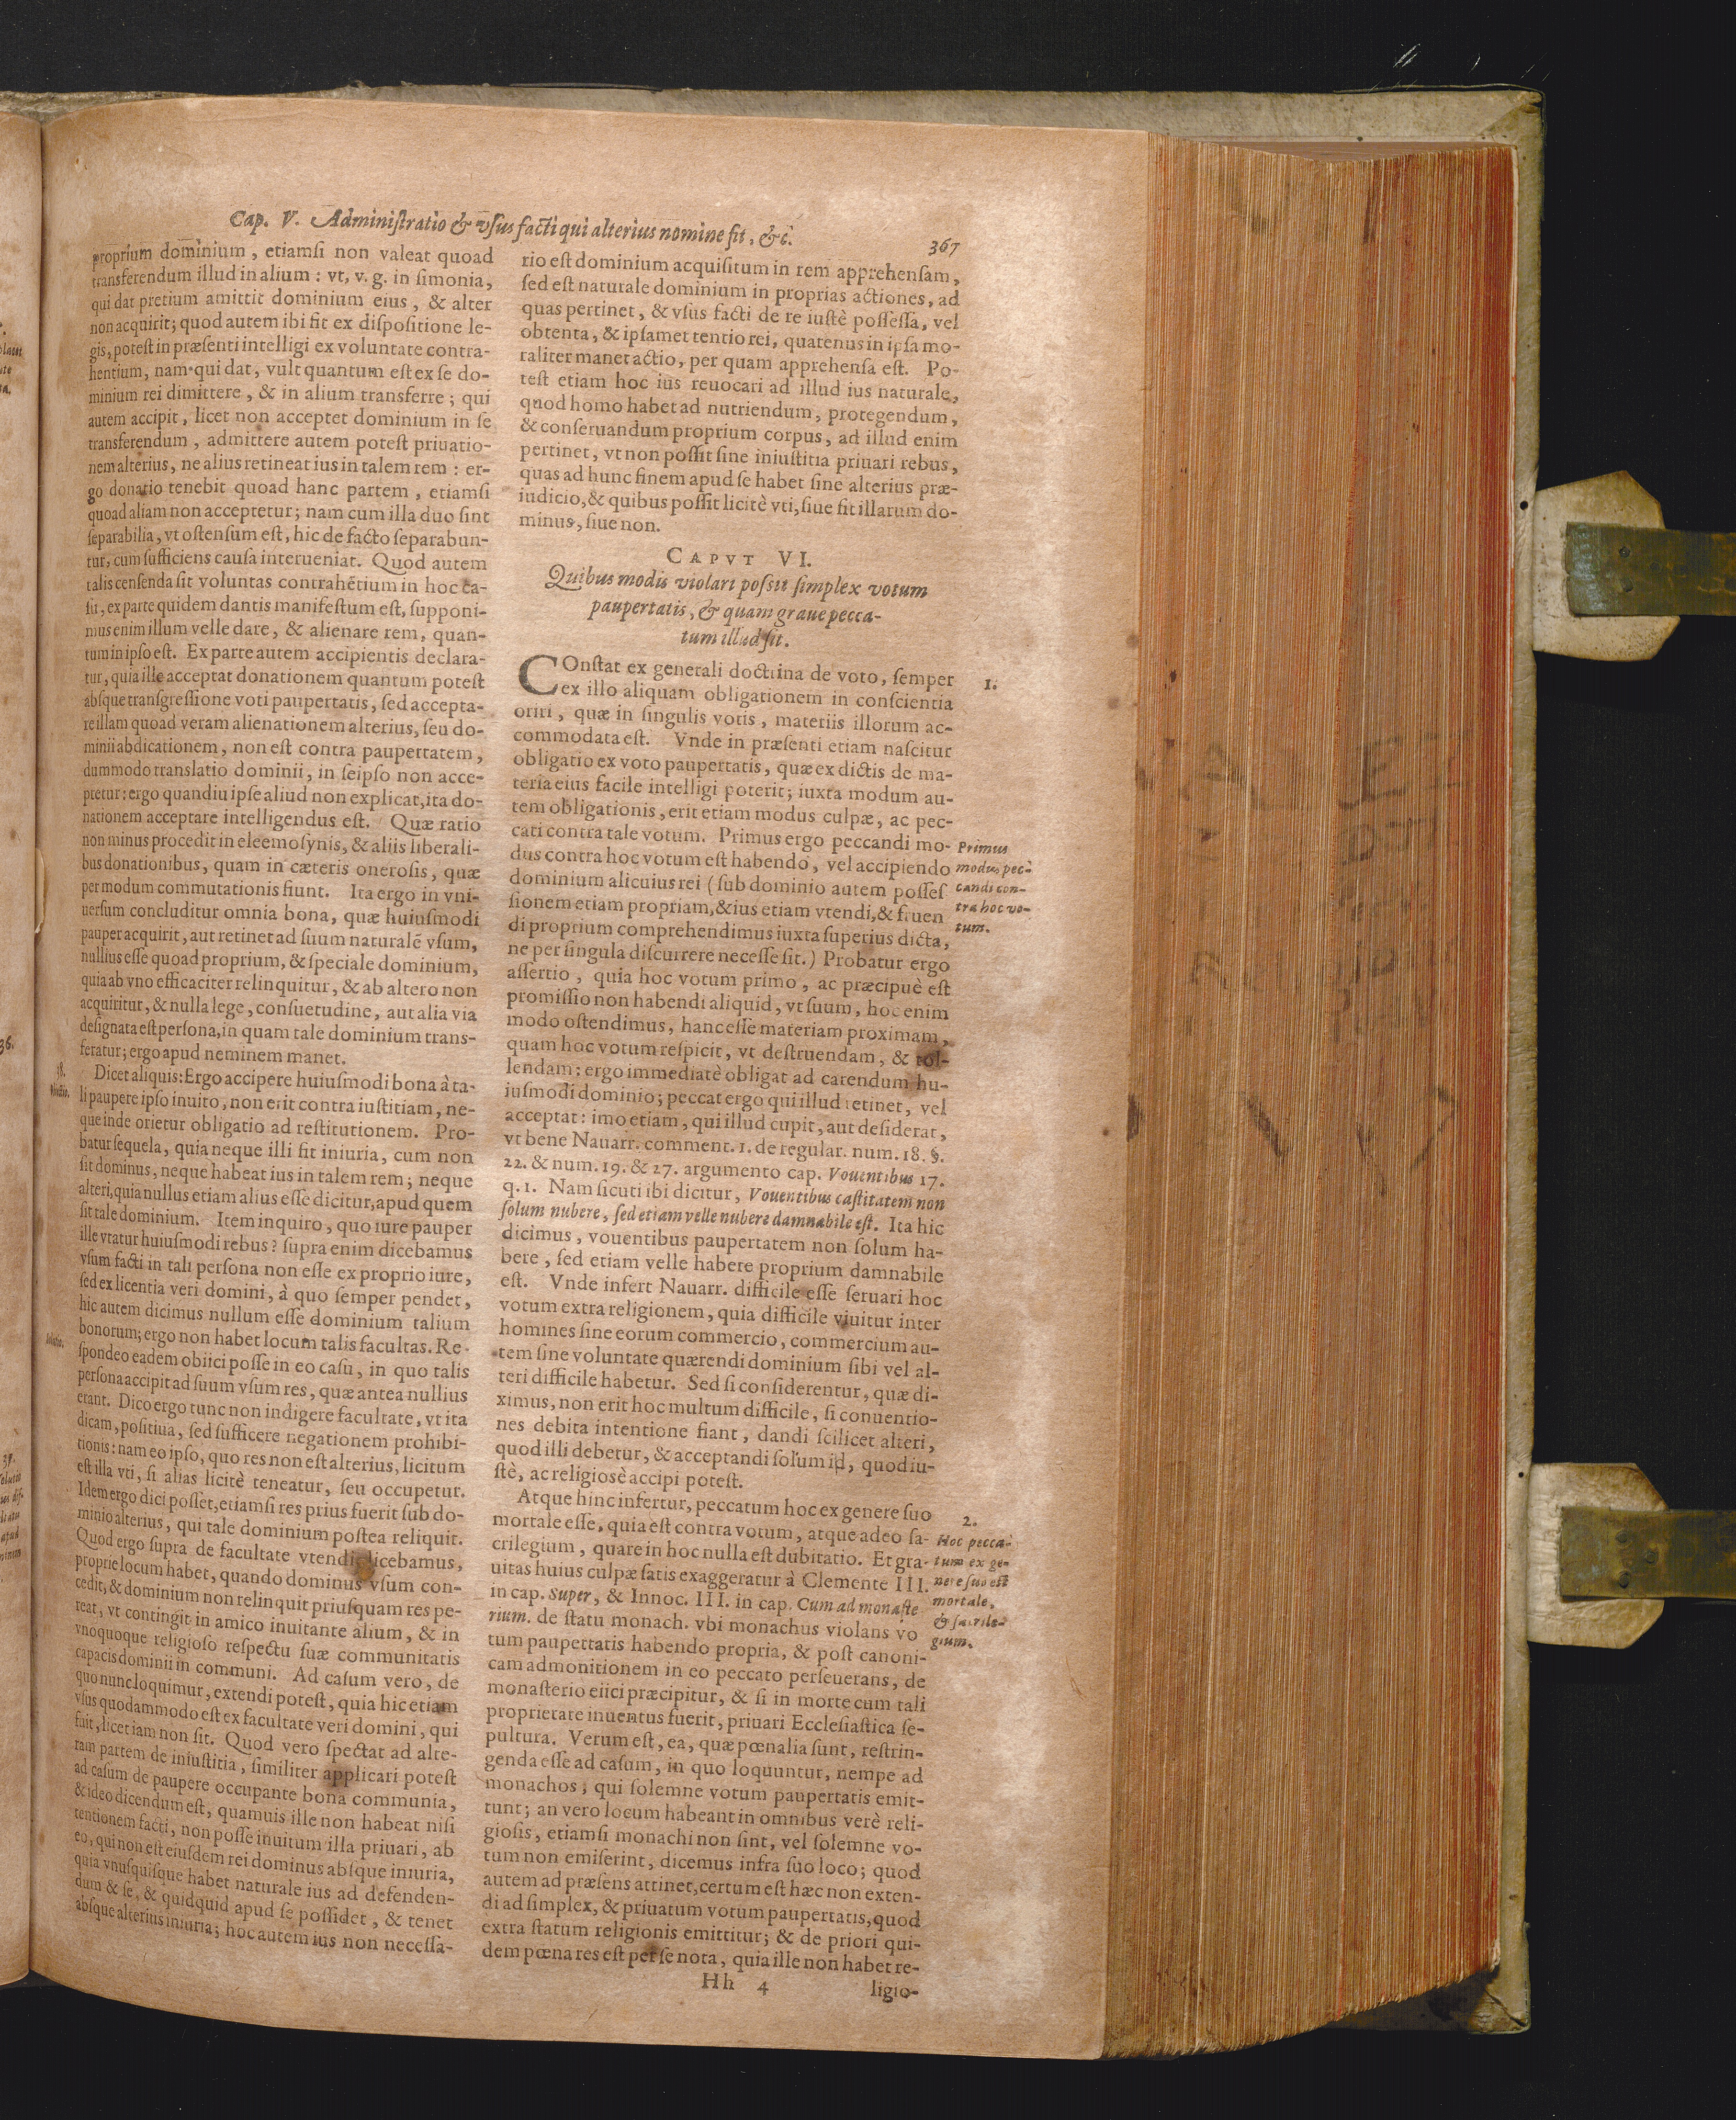 Cap. V. Administratio & vsus facti qui alterius nomine fit, &c.
367
proprium dominium, etiamsi non valeat quoad
transferendum illud in alium: vt, v. g. in simonia,
qui dat pretium amittit dominium eius, & alter
non acquirit; quod autem ibi fit ex dispositione le-
gis, potest in præsenti intelligi ex voluntate contra-
hentium, nam qui dat, vult quantum est ex se do-
minium rei dimittere, & in alium transferre; qui
autem accipit, licet non acceptet dominium in se
transferendum, admittere autem potest priuatio-
nem alterius, ne alius retineat ius in talem rem: er-
go donatio tenebit quoad hanc partem, etiamsi
quoad aliam non acceptetur; nam cum illa duo sint
separabilia, vt ostensum est, hic de facto separabun-
tur, cum sufficiens causa interueniat. Quod autem
talis censenda sit voluntas contrahẽtium in hoc ca-
su, ex parte quidem dantis manifestum est, supponi-
mus enim illum velle dare, & alienare rem, quan-
tum in ipso est. Ex parte autem accipientis declara-
tur, quia ille acceptat donationem quantum potest
absque transgressione voti paupertatis, sed accepta-
re illam quoad veram alienationem alterius, seu do-
minii abdicationem, non est contra paupertatem,
dummodo translatio dominii, in seipso non acce-
ptetur: ergo quandiu ipse aliud non explicat, ita do-
nationem acceptare intelligendus est. Quæ ratio
non minus procedit in eleemosynis, & aliis liberali-
bus donationibus, quam in cæteris onerosis, quæ
per modum commutationis fiunt. Ita ergo in vni-
uersum concluditur omnia bona, quæ huiusmodi
pauper acquirit, aut retinet ad suum naturalẽ vsum,
nullius esse quoad proprium, & speciale dominium,
quia ab vno efficaciter relinquitur, & ab altero non
acquiritur, & nulla lege, consuetudine, aut alia via
designata est persona, in quam tale dominium trans-
feratur; ergo apud neminem manet.
38.
Dicet aliquis: Ergo accipere huiusmodi bona à ta-
li paupere ipso inuito, non erit contra iustitiam, ne-
que inde orietur obligatio ad restitutionem. Pro-
batur sequela, quia neque illi fit iniuria, cum non
sit dominus, neque habeat ius in talem rem; neque
alteri, quia nullus etiam alius esse dicitur, apud quem
sit tale dominium. Item inquiro, quo iure pauper
ille vtatur huiusmodi rebus? supra enim dicebamus
vsum facti in tali persona non esse ex proprio iure,
sed ex licentia veri domini, à quo semper pendet,
hic autem dicimus nullum esse dominium talium
bonorum; ergo non habet locum talis facultas. Re-
spondeo eadem obiici posse in eo casu, in quo talis
persona accipit ad suum vsum res, quæ antea nullius
erant. Dico ergo tunc non indigere facultate, vt ita
dicam, positiua, sed sufficere negationem prohibi-
tionis: nam eo ipso, quo res non est alterius, licitum
est illa vti, si alias licitè teneatur, seu occupetur.
Idem ergo dici posset, etiamsi res prius fuerit sub do-
minio alterius, qui tale dominium postea reliquit.
Quod ergo supra de facultate vtendi dicebamus,
proprie locum habet, quando dominus vsum con-
cedit, & dominium non relinquit priusquam res pe-
reat, vt contingit in amico inuitante alium, & in
vnoquoque religioso respectu suæ communitatis
capacis dominii in communi. Ad casum vero, de
quo nunc loquimur, extendi potest, quia hic etiam
vsus quodammodo est ex facultate veri domini, qui
fuit, licet iam non sit. Quod vero spectat ad alte-
ram partem de iniustitia, similiter applicari potest
ad casum de paupere occupante bona communia,
& ideo dicendum est, quamuis ille non habeat nisi
tentionem facti, non posse inuitum illa priuari, ab
eo, qui non est eiusdem rei dominus absque iniuria,
quia vnusquisque habet naturale ius ad defenden-
dum & se, & quidquid apud se possidet, & tenet
absque alterius iniuria; hoc autem ius non necessa-
rio est dominium acquisitum in rem apprehensam,
sed est naturale dominium in proprias actiones, ad
quas pertinet, & vsus facti de re iustè possessa, vel
obtenta, & ipsamet tentio rei, quatenus in ipsa mo-
raliter manet actio, per quam apprehensa est. Po-
test etiam hoc ius reuocari ad illud ius naturale,
quod homo habet ad nutriendum, protegendum,
& conseruandum proprium corpus, ad illud enim
pertinet, vt non possit sine iniustitia priuari rebus,
quas ad hunc finem apud se habet sine alterius præ-
iudicio, & quibus possit licitè vti, siue sit illarum do-
minus, siue non.
CAPVT VI.
Quibus modis violari possit simplex votum
paupertatis, & quam graue pecca-
tum illud sit.
COnstat ex generali doctrina de voto, semper
ex illo aliquam obligationem in conscientia
oriri, quæ in singulis votis, materiis illorum ac-
commodata est. Vnde in præsenti etiam nascitur
obligatio ex voto paupertatis, quæ ex dictis de ma-
teria eius facile intelligi poterit; iuxta modum au-
tem obligationis, erit etiam modus culpæ, ac pec-
cati contra tale votum. Primus ergo peccandi mo-
dus contra hoc votum est habendo, vel accipiendo
dominium alicuius rei (sub dominio autem posses
sionem etiam propriam, & ius etiam vtendi, & fruen
di proprium comprehendimus iuxta superius dicta,
ne per singula discurrere necesse sit.) Probatur ergo
assertio, quia hoc votum primo, ac præcipuè est
promissio non habendi aliquid, vt suum, hoc enim
modo ostendimus, hanc esse materiam proximam,
quam hoc votum respicit, vt destruendam, & tol-
lendam: ergo immediatè obligat ad carendum hu-
iusmodi dominio; peccat ergo qui illud retinet, vel
acceptat: imo etiam, qui illud cupit, aut desiderat,
vt bene Nauarr. comment. 1. de regular. num. 18. §.
22. & num. 19. & 27. argumento cap. Vouentibus 17.
q. 1. Nam sicuti ibi dicitur, Vouentibus castitatem non
solum nubere, sed etiam velle nubere damnabile est. Ita hic
dicimus, vouentibus paupertatem non solum ha-
bere, sed etiam velle habere proprium damnabile
est. Vnde infert Nauarr. difficile esse seruari hoc
votum extra religionem, quia difficile viuitur inter
homines sine eorum commercio, commercium au-
tem sine voluntate quærendi dominium sibi vel al-
teri difficile habetur. Sed si considerentur, quæ di-
ximus, non erit hoc multum difficile, si conuentio-
nes debita intentione fiant, dandi scilicet alteri,
quod illi debetur, & acceptandi solum id, quod iu-
stè, ac religiosè accipi potest.
Atque hinc infertur, peccatum hoc ex genere suo
mortale esse, quia est contra votum, atque adeo sa-
crilegium, quare in hoc nulla est dubitatio. Et gra-
uitas huius culpæ satis exaggeratur à Clemente III.
in cap. Super, & Innoc. III. in cap. Cum ad monaste
rium. de statu monach. vbi monachus violans vo
tum paupertatis habendo propria, & post canoni-
cam admonitionem in eo peccato perseuerans, de
monasterio eiici præcipitur, & si in morte cum tali
proprietate inuentus fuerit, priuari Ecclesiastica se-
pultura. Verum est, ea, quæ pœnalia sunt, restrin-
genda esse ad casum, in quo loquuntur, nempe ad
monachos, qui solemne votum paupertatis emit-
tunt; an vero locum habeant in omnibus verè reli-
giosis, etiamsi monachi non sint, vel solemne vo-
tum non emiserint, dicemus infra suo loco; quod
autem ad præsens attinet, certum est hæc non exten-
di ad simplex, & priuatum votum paupertatis, quod
extra statum religionis emittitur; & de priori qui-
dem pœna res est per se nota, quia ille non habet re-
Hh 4
ligio-
1.
Primus
modus pec-
candi con-
tra hoc vo-
tum.
2.
Hoc pecca-
tum ex ge-
nere suo est
mortale,
& sacrile-
gium.